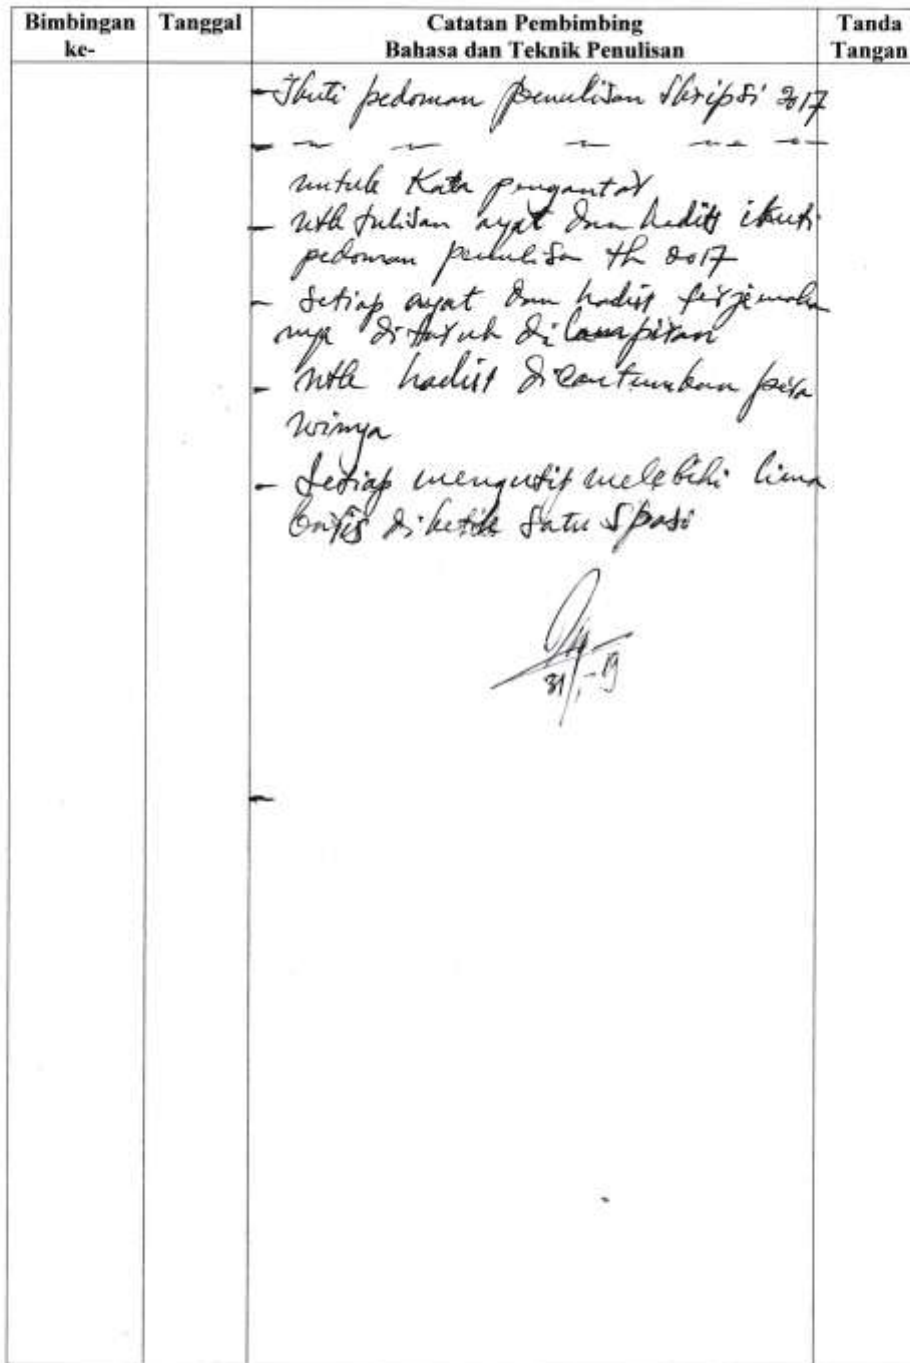 Bimbingan ke-
Tanggal
Catatan Pembimbing
Bahasa dan Teknik Penulisan
Tanda Tangan
- Ikuti pedoman penulisan Skripsi 2017
- ~ ~ ~ ~ ~
untuk Kata pengantar
- utk tulisan ayat dan hadits ikuti
pedoman penulisan th 2017
- Setiap ayat dan hadist terjemaha
nya ditaruh di lampiran
- utk hadist dicantumkan pera
winya
- Setiap mengutip melebihi lima
baris diketik satu spasi
31/1-19
-